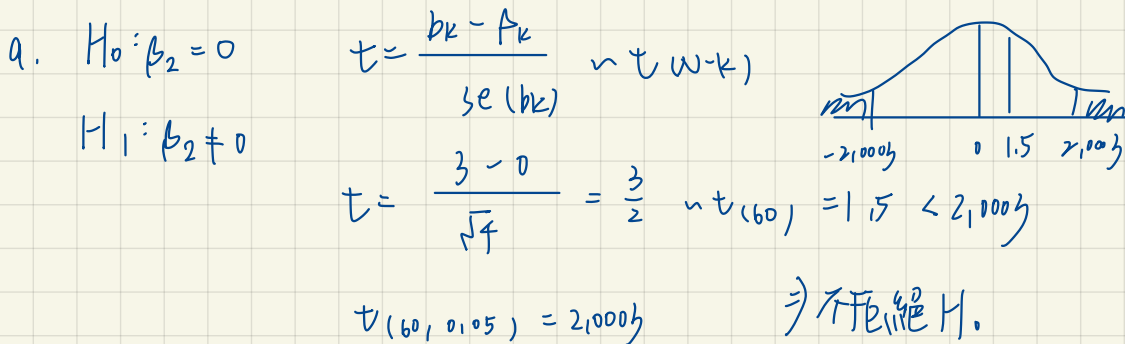 a. H₀:β₂ = 0
t = (bₖ - βₖ) / se(bₖ) ~ t(N-k)
H₁:β₂ ≠ 0
-2,0003 0 1.5 2,0003
t = (3 - 0) / √4 = 3/2 ~ t(60) = 1,5 < 2,0003
t(60, 0,05) = 2,0003
⇒ 不拒絕 H₀